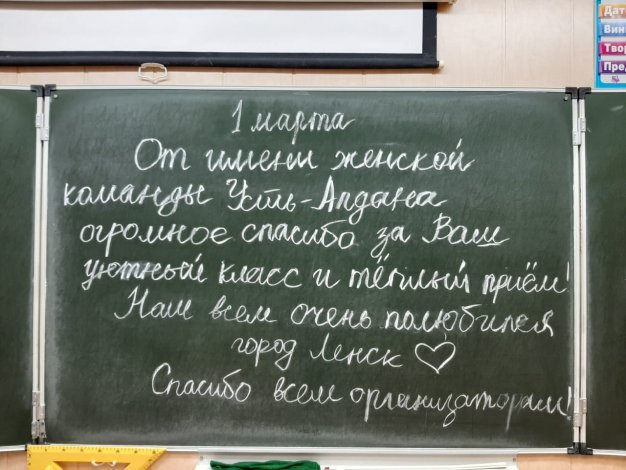 1 марта
От имени женской
команды Усть-Алдана
огромное спасибо за Ваш
уютный класс и тёплый приём!
Нам всем очень полюбился
город Ленск ♡
Спасибо всем организаторам!